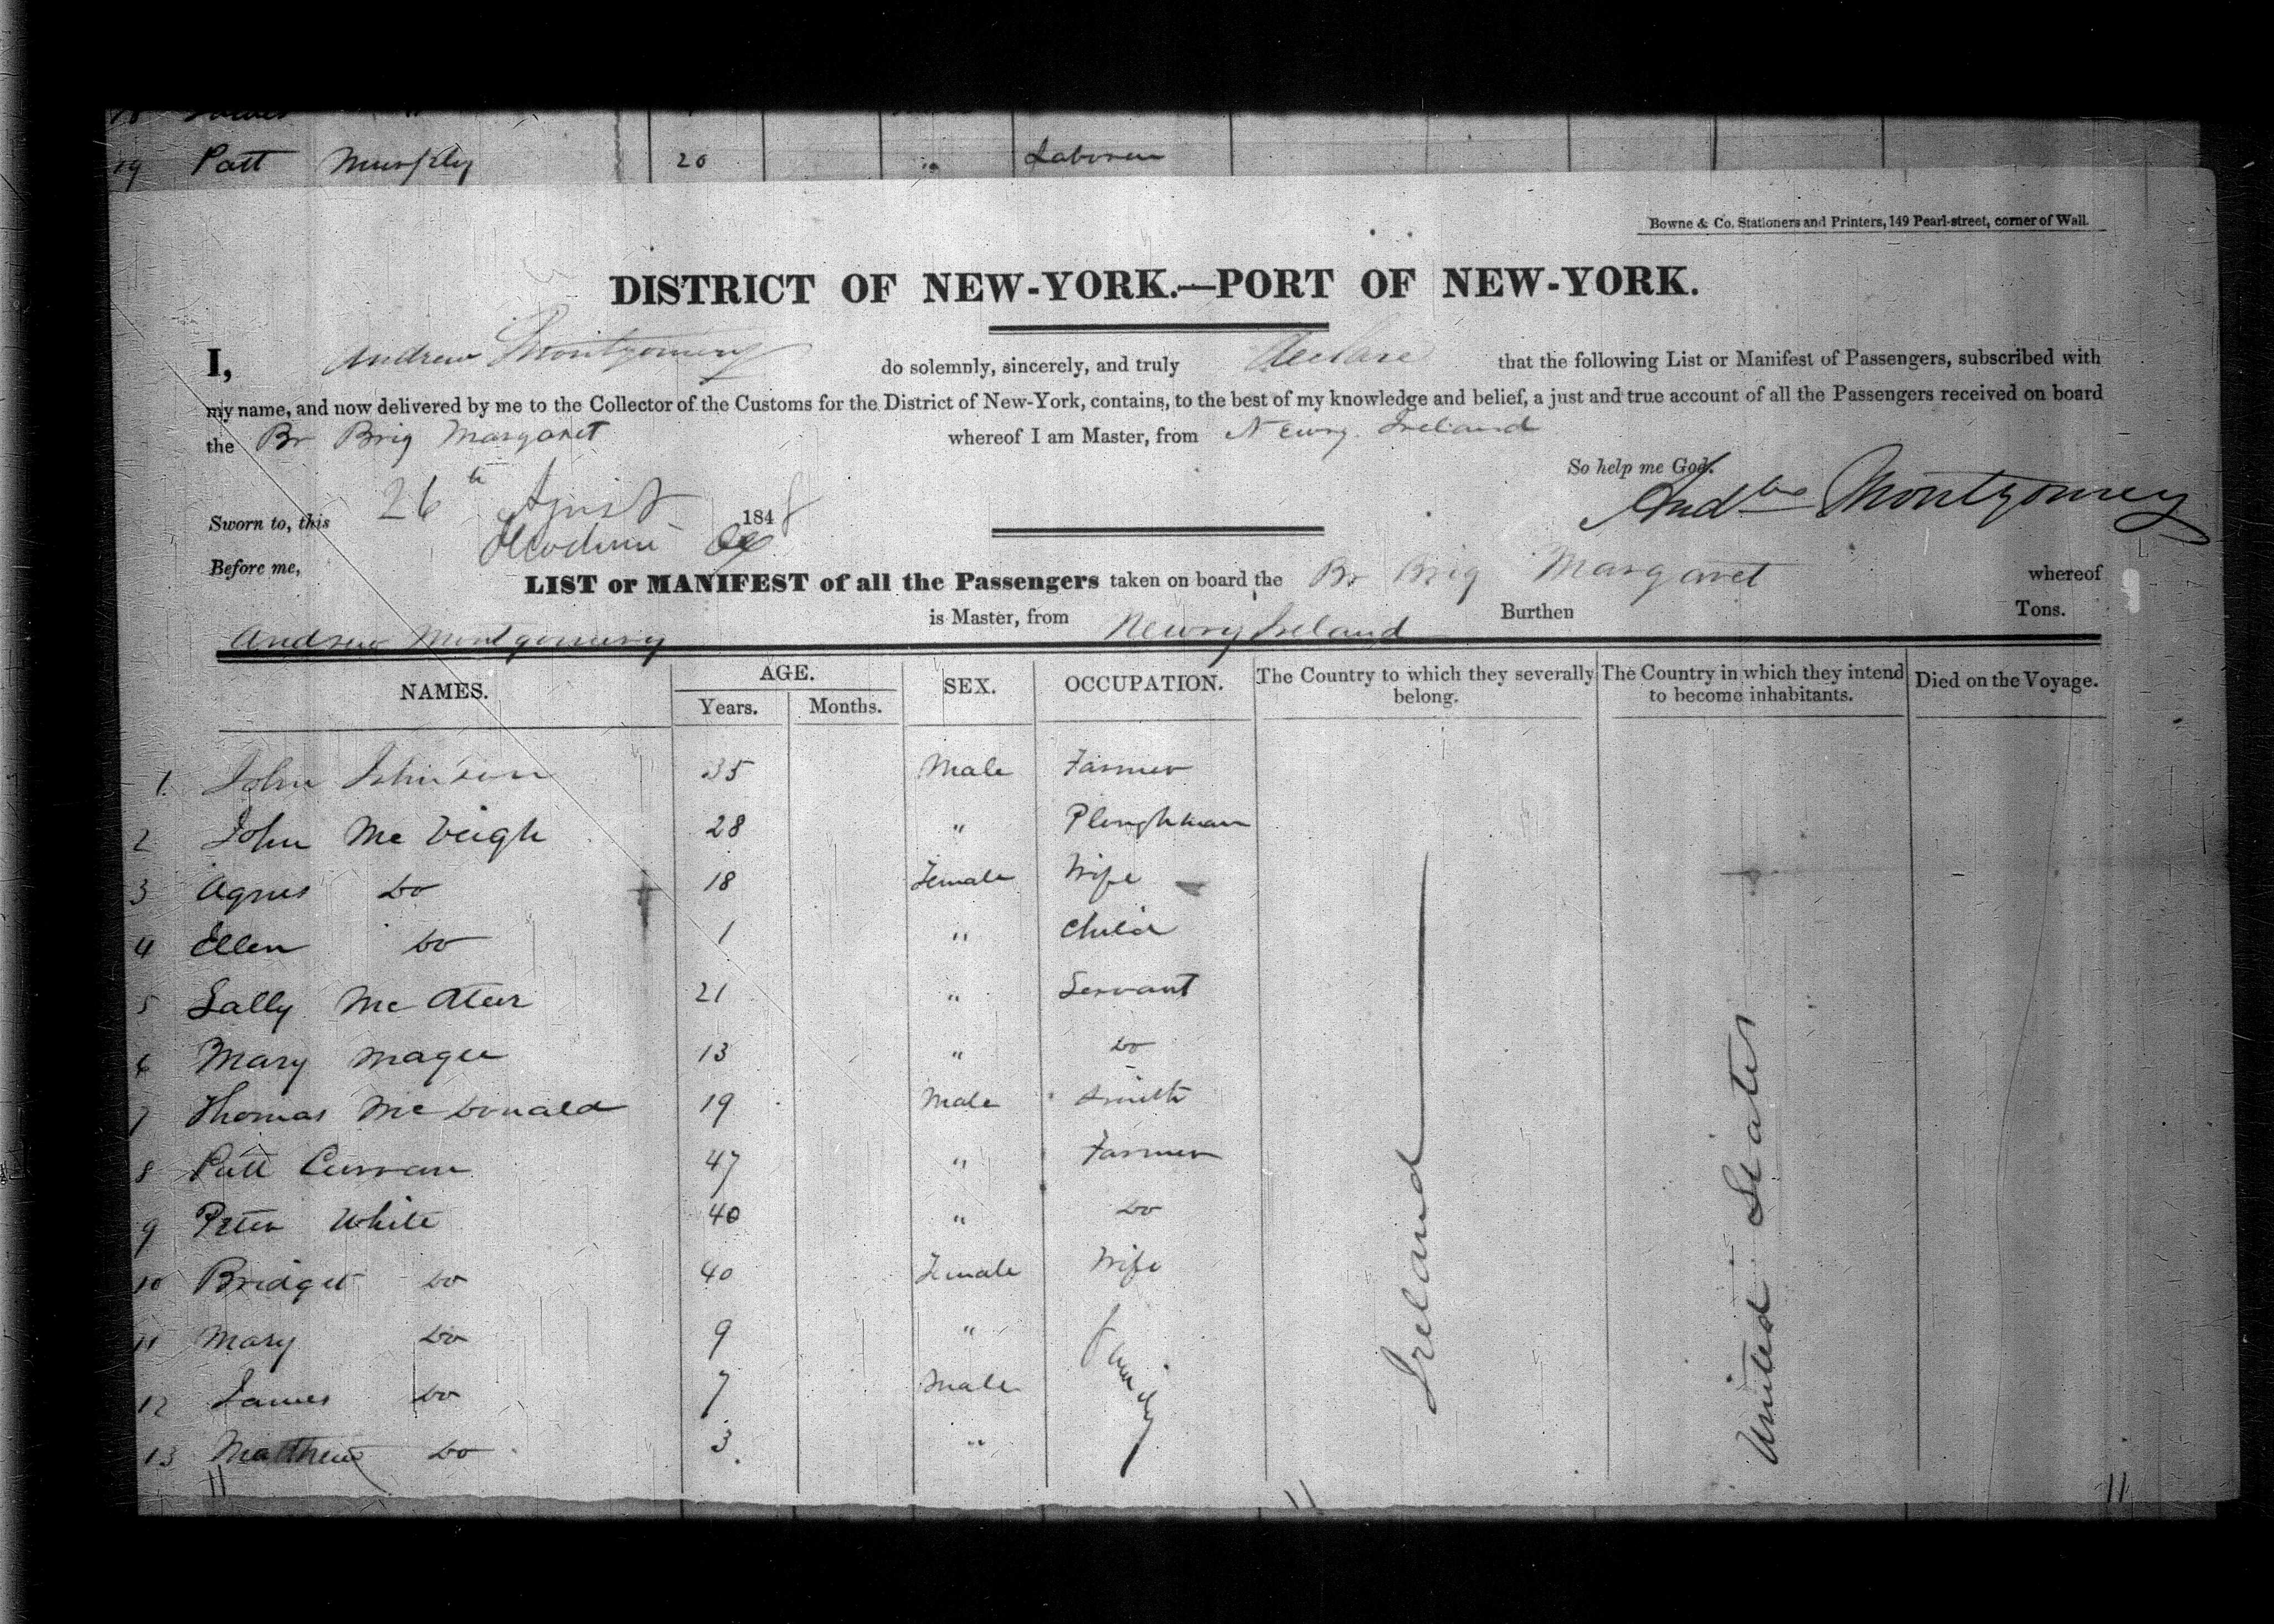 19 Patt Murphy 20 " Laborer
Bowne & Co. Stationers and Printers, 149 Pearl-street, corner of Wall.
DISTRICT OF NEW-YORK.—PORT OF NEW-YORK.
I, Andrew Montgomery do solemnly, sincerely, and truly declare that the following List or Manifest of Passengers, subscribed with
my name, and now delivered by me to the Collector of the Customs for the District of New-York, contains, to the best of my knowledge and belief, a just and true account of all the Passengers received on board
the Br Brig Margaret whereof I am Master, from Newry Ireland
So help me God.
Andw Montgomery
Sworn to, this 26th 1848
Before me,
LIST or MANIFEST of all the Passengers taken on board the Br Brig Margaret whereof
Andrew Montgomery is Master, from Newry Ireland Burthen Tons.
NAMES. AGE. Years. Months. SEX. OCCUPATION. The Country to which they severally belong. The Country in which they intend to become inhabitants. Died on the Voyage.
1 John Johnson 35 Male Farmer
2 John McVeigh 28 " Ploughman
3 Agnes Do 18 Female Wife
4 Ellen Do 1 " Child
5 Sally McAteer 21 " Servant
6 Mary Magee 13 " Do
7 Thomas McDonald 19 Male Smith
8 Patt Curran 47 " Farmer
9 Peter White 40 " Do
10 Bridget Do 40 Female Wife
11 Mary Do 9 "
12 James Do 7 Male
13 Matthew Do 3 "
family
Ireland
United States